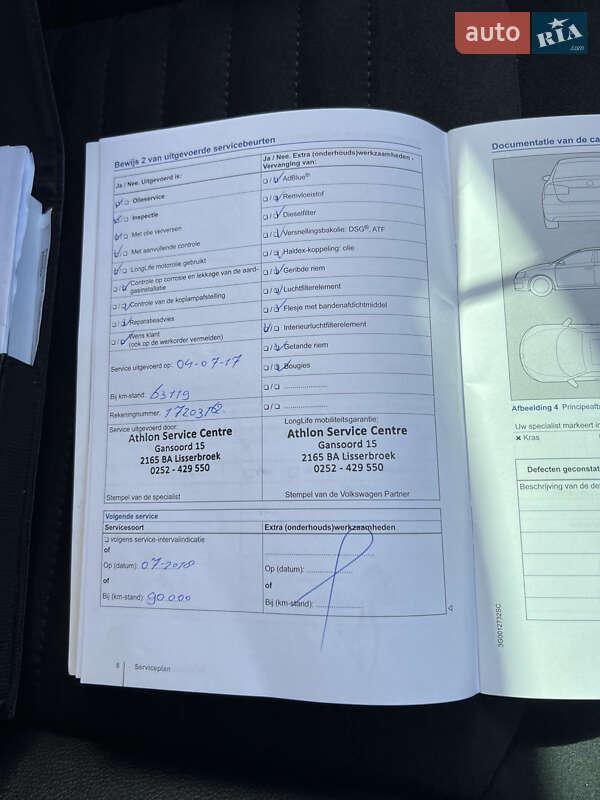 auto RIA .com
Bewijs 2 van uitgevoerde servicebeurten
Ja / Nee. Uitgevoerd is:
Olieservice
Inspectie
Met olie verversen
Met aanvullende controle
LongLife motorolie gebruikt
Controle op corrosie en lekkage van de aard-
gasinstallatie
Controle van de koplampafstelling
Reparatieadvies
Wens klant
(ook op de werkorder vermelden)
Service uitgevoerd op: 04-07-17
Bij km-stand: 63119
Rekeningnummer:
Service uitgevoerd door:
Athlon Service Centre
Gansoord 15
2165 BA Lisserbroek
0252 - 429 550
Stempel van de specialist
Ja / Nee. Extra (onderhouds)werkzaamheden -
Vervanging van:
AdBlue®
Remvloeistof
Dieselfilter
Versnellingsbakolie: DSG®, ATF
Haldex-koppeling: olie
Geribde riem
Luchtfilterelement
Flesje met bandenafdichtmiddel
Interieurluchtfilterelement
Getande riem
Bougies
LongLife mobiliteitsgarantie:
Athlon Service Centre
Gansoord 15
2165 BA Lisserbroek
0252 - 429 550
Stempel van de Volkswagen Partner
Volgende service
Servicesoort
volgens service-intervalindicatie
of
Op (datum): 07-2018
of
Bij (km-stand): 90.000
Extra (onderhouds)werkzaamheden
Op (datum):
of
Bij (km-stand):
8 Serviceplan
Documentatie van de ca
Afbeelding 4 Principeafb
Uw specialist markeert i
× Kras
Defecten geconstat
Beschrijving van de de
3G0012732SC